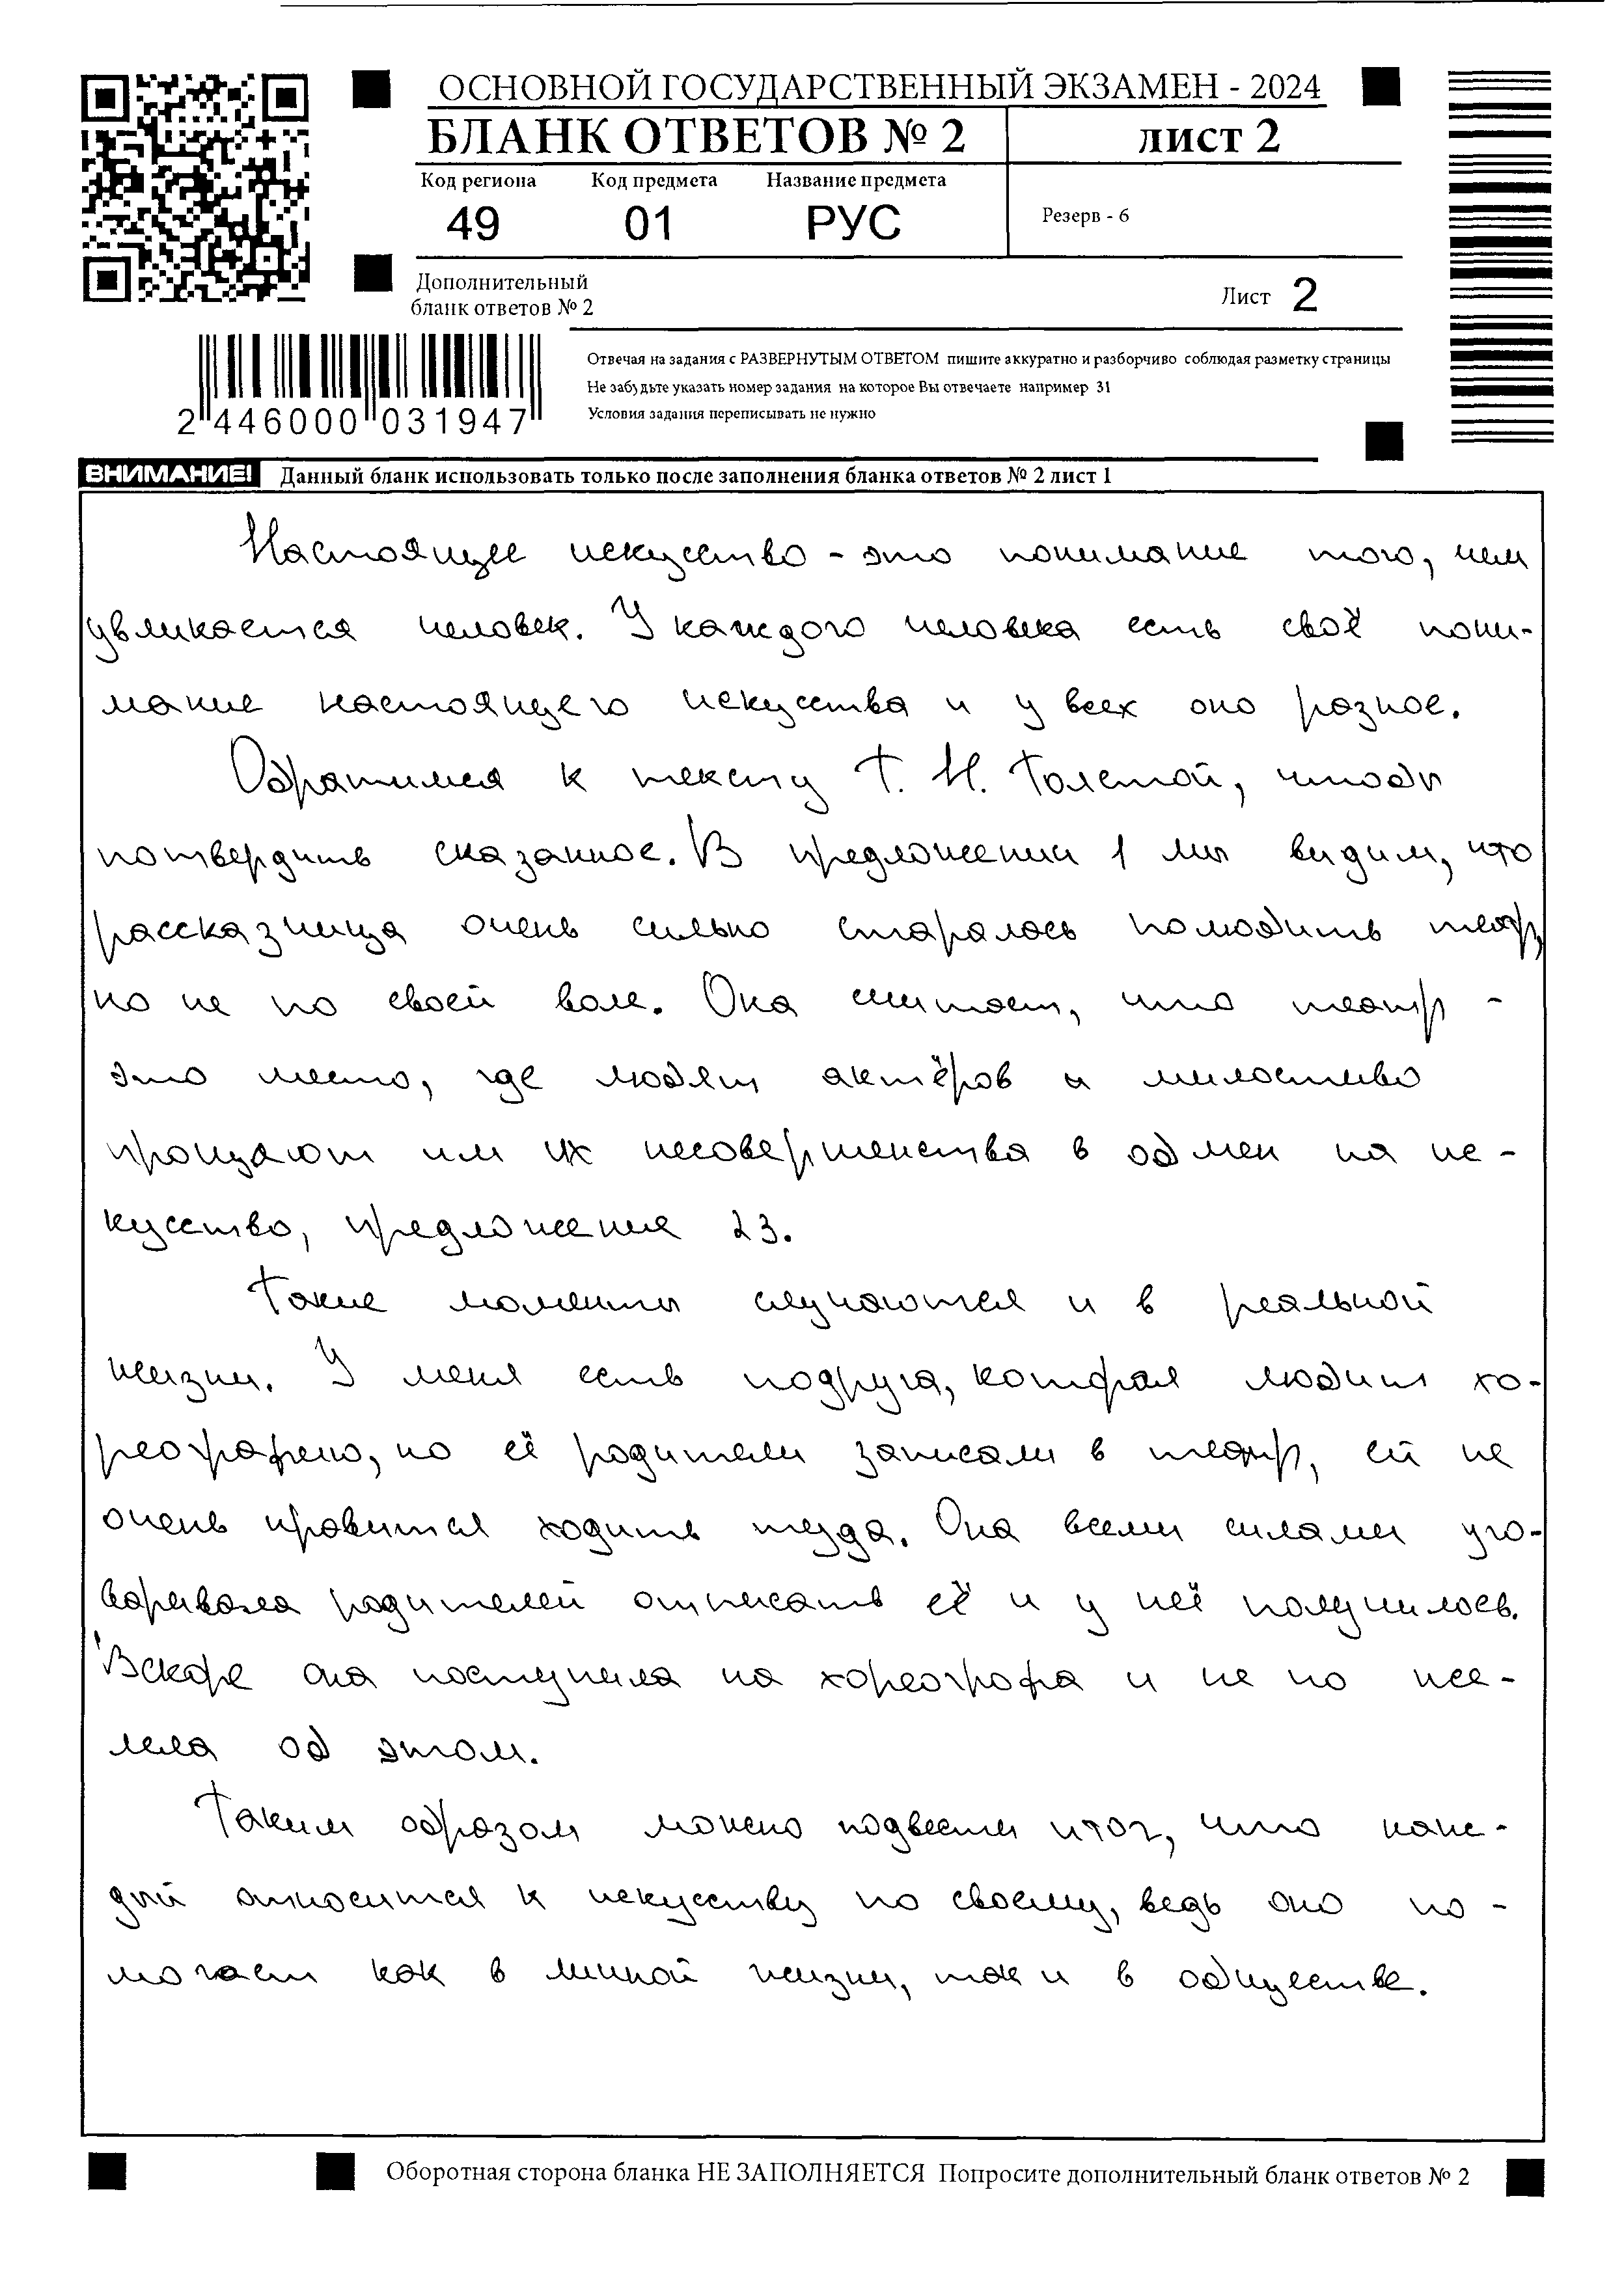 ОСНОВНОЙ ГОСУДАРСТВЕННЫЙ ЭКЗАМЕН - 2024
БЛАНК ОТВЕТОВ № 2 лист 2
Код региона Код предмета Название предмета
49 01 РУС Резерв - 6
Дополнительный
бланк ответов № 2
Лист 2
Отвечая на задания с РАЗВЕРНУТЫМ ОТВЕТОМ пишите аккуратно и разборчиво соблюдая разметку страницы
Не забудьте указать номер задания на которое Вы отвечаете например 31
Условия задания переписывать не нужно
2 446000 031947
ВНИМАНИЕ! Данный бланк использовать только после заполнения бланка ответов № 2 лист 1
Настоящее искусство - это понимание того, чем
увликается человек. У каждого человека есть своё пони-
мание настоящего искусства и у всех оно разное.
Обратимся к тексту Т. Н. Толстой, чтобы
потвердить сказанное. В предложении 1 мы видим, что
рассказчица очень сильно старалась полюбить театр,
но не по своей воле. Она считает, что театр -
это место, где любят актёров и милостиво
прощают им их несовершенства в обмен на ис-
кусство, предложение 23.
Такие моменты случаются и в реальной
жизни. У меня есть подруга, которая любит хо-
реографию, но её родители записали в театр, ей не
очень нравится ходить туда. Она всеми силами уго-
варивала родителей отписать её и у неё получилось.
Вскоре она поступила на хореографа и не по жа-
лела об этом.
Таким образом можно подвести итог, что каж-
дый относится к искусству по своему, ведь оно по-
могает как в личной жизни, так и в обществе.
Оборотная сторона бланка НЕ ЗАПОЛНЯЕТСЯ Попросите дополнительный бланк ответов № 2